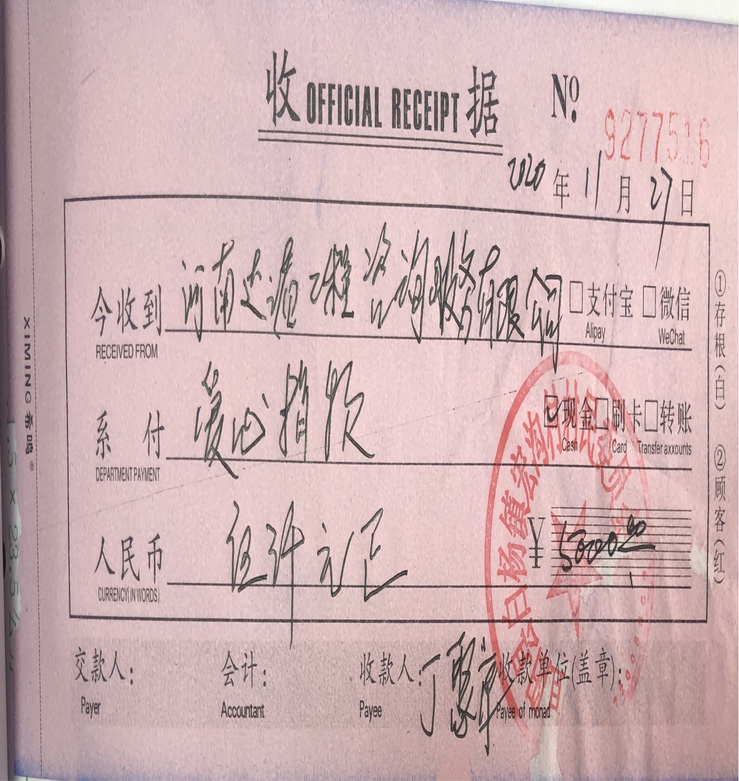 收 OFFICIAL RECEIPT 据 Nº 9277516
2020 年 11 月 27 日
今收到 河南达 工程咨询服务有限公司 □支付宝 □微信
RECEIVED FROM Alipay WeChat
系付 爱心捐款 ☑现金 □刷卡 □转账
DEPARTMENT PAYMENT Cash Card Transferaxxounts
人民币 伍仟元正 ¥ 5000.00
CURRENCY(IN WORDS)
交款人: 会计: 收款人: 丁 收款单位(盖章):
Payer Accountant Payee Payee of monad
①存根(白) ②顾客(红)
XIMING 希鸣
白杨镇